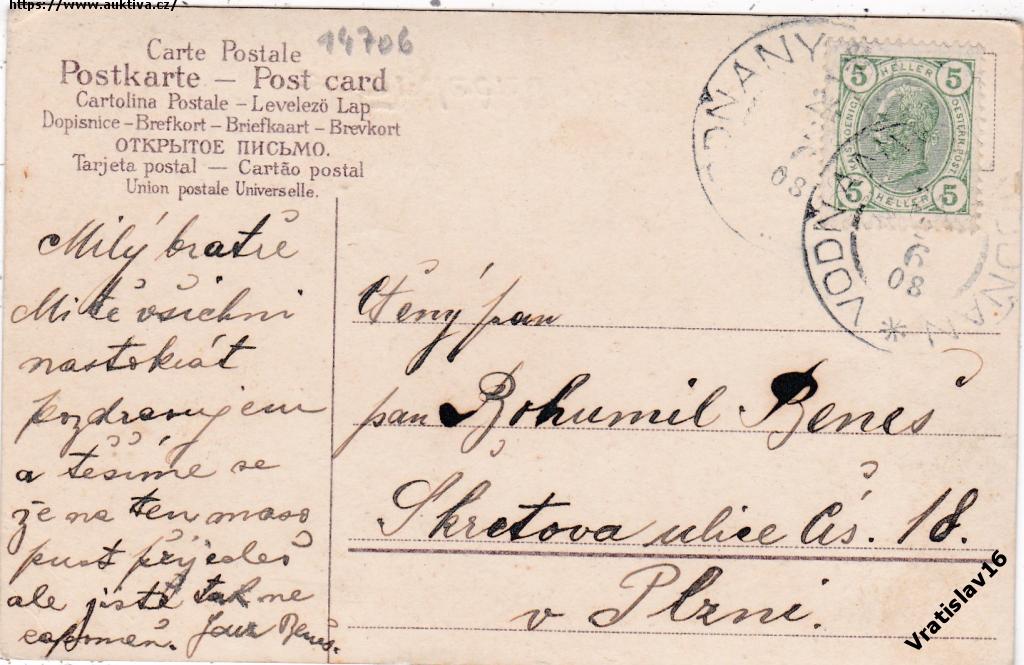 https://www.auktiva.cz/
14706
Carte Postale
Postkarte – Post card
Cartolina Postale – Levelező Lap
Dopisnice – Brefkort – Briefkaart – Brevkort
ОТКРЫТОЕ ПИСЬМО.
Tarjeta postal — Cartão postal
Union postale Universelle.
VODNANY
08
5 HELLER 5
5 HELLER 5
VODNANY
6
08
Milý bratře
Mi tě všichni
nastokrát
pozdravujem
a těšíme se
že na ten maso
pust přijedeš
ale jistě tak ne
zapomeň. Beneš.
Ctěný pan
pan Bohumil Beneš
Škretova ulice čís. 18.
v Plzni.
Vratislav16